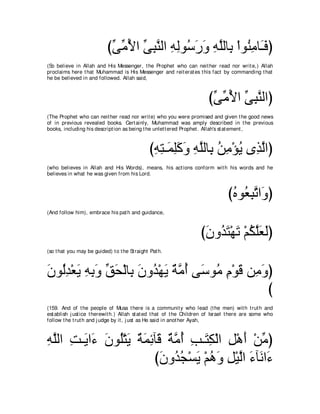 (فَـَامِنُواْ بِاللَّهِ وَرَسُولِهِ النَّبِىِّ الأُمِّىِّ)
(So believe in Allah and His Messenger, the Prophet who can neither read nor write,) Allah
proclaims here that Muhammad is His Messenger and reiterates this fact by commanding that
he be believed in and followed. Allah said,
(النَّبِىِّ الأُمِّىِّ)
(The Prophet who can neither read nor write) who you were promised and given the good news
of in previous revealed books. Certainly, Muhammad was amply described in the previous
books, including his description as being the unlettered Prophet. Allah's statement,
(الَّذِى يُؤْمِنُ بِاللَّهِ وَكَلِمَـتِهِ)
(who believes in Allah and His Words), means, his actions conform with his words and he
believes in what he was given from his Lord.
(وَاتَّبِعُوهُ)
(And follow him), embrace his path and guidance,
(لَعَلَّكُمْ تَهْتَدُونَ)
(so that you may be guided) to the Straight Path.
(وَمِن قَوْمِ مُوسَى أُمَّةٌ يَهْدُونَ بِالْحَقِّ وَبِهِ يَعْدِلُونَ
)
(159. And of the people of Musa there is a community who lead (the men) with truth and
establish justice therewith.) Allah stated that of the Children of Israel there are some who
follow the truth and judge by it, just as He said in another Ayah,
(مِّنْ أَهْلِ الْكِتَـبِ أُمَّةٌ قَآئِمَةٌ يَتْلُونَ ءَايَـتِ اللَّهِ
ءَانَآءَ الَّيْلِ وَهُمْ يَسْجُدُونَ)